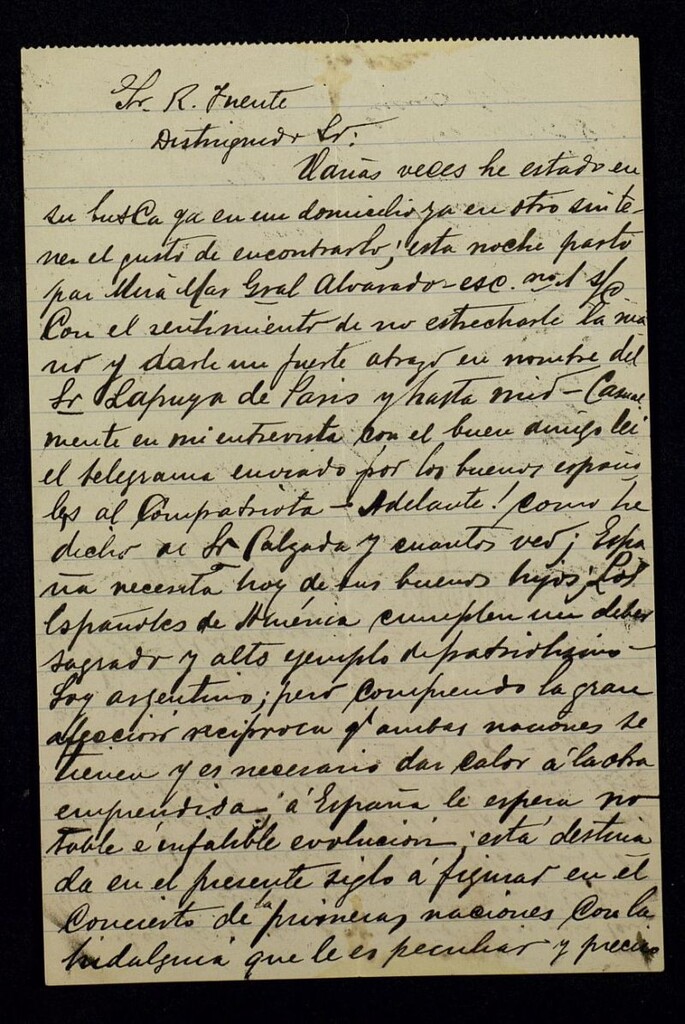 Sr. R. Fuente
Distinguido Sr:
Varias veces he estado en
su busca ya en un domicilio ya en otro sin te-
ner el gusto de encontrarlo; esta noche parto
par Mar Gral Alvarado - esc. no 1 s/c
Con el sentimiento de no estrecharle la ma
no y darle un fuerte abrazo en nombre del
Sr Lapuya de Paris y hasta mio - Casual
mente en mi entrevista con el buen amigo lei
el telegrama enviado por los buenos españo
les al Compatriota - Adelante! como he
dicho al Sr Calzada y cuantos veo; Espa
ña necesita hoy de sus buenos hijos; Los
Españoles de América cumplen un deber
sagrado y alto ejemplo de patriotismo -
Soy argentino; pero comprendo la gran
afeccion reciproca q' ambas naciones se
tienen y es necesario dar calor á la obra
emprendida; á España le espera no
table é infalible evolución; está destina
da en el presente siglo á figurar en el
Concierto de la primeras naciones con la
hidalguia que le es peculiar y